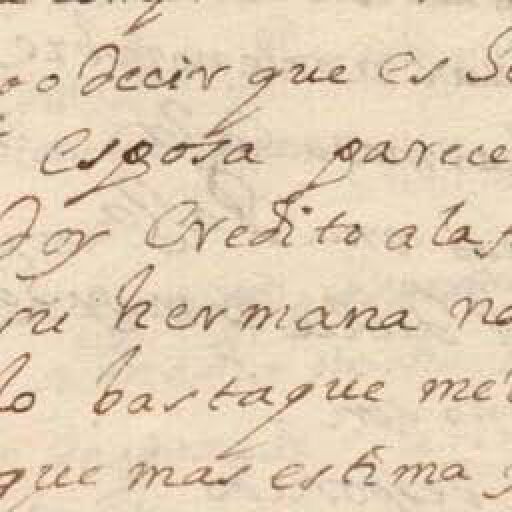 decir que es
esposa parece
doy Credito a las
su hermana
lo bastaque me
que mas estima